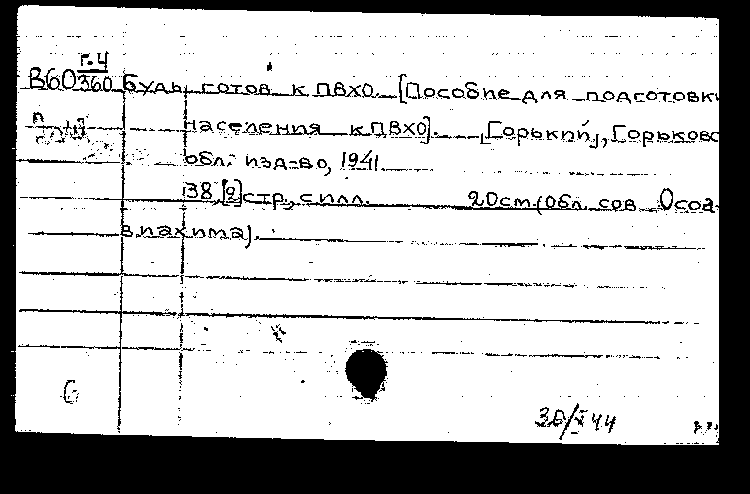 Г.4
В60 360 Будь готов к ПВХО. [Пособие для подготовки
населения к ПВХО]. [Горький], Горьковс
обл. изд-во, 1941.
138,[2]стр., с илл. 20см.(Обл. сов Осоа-
виахима).
6
30/X 44